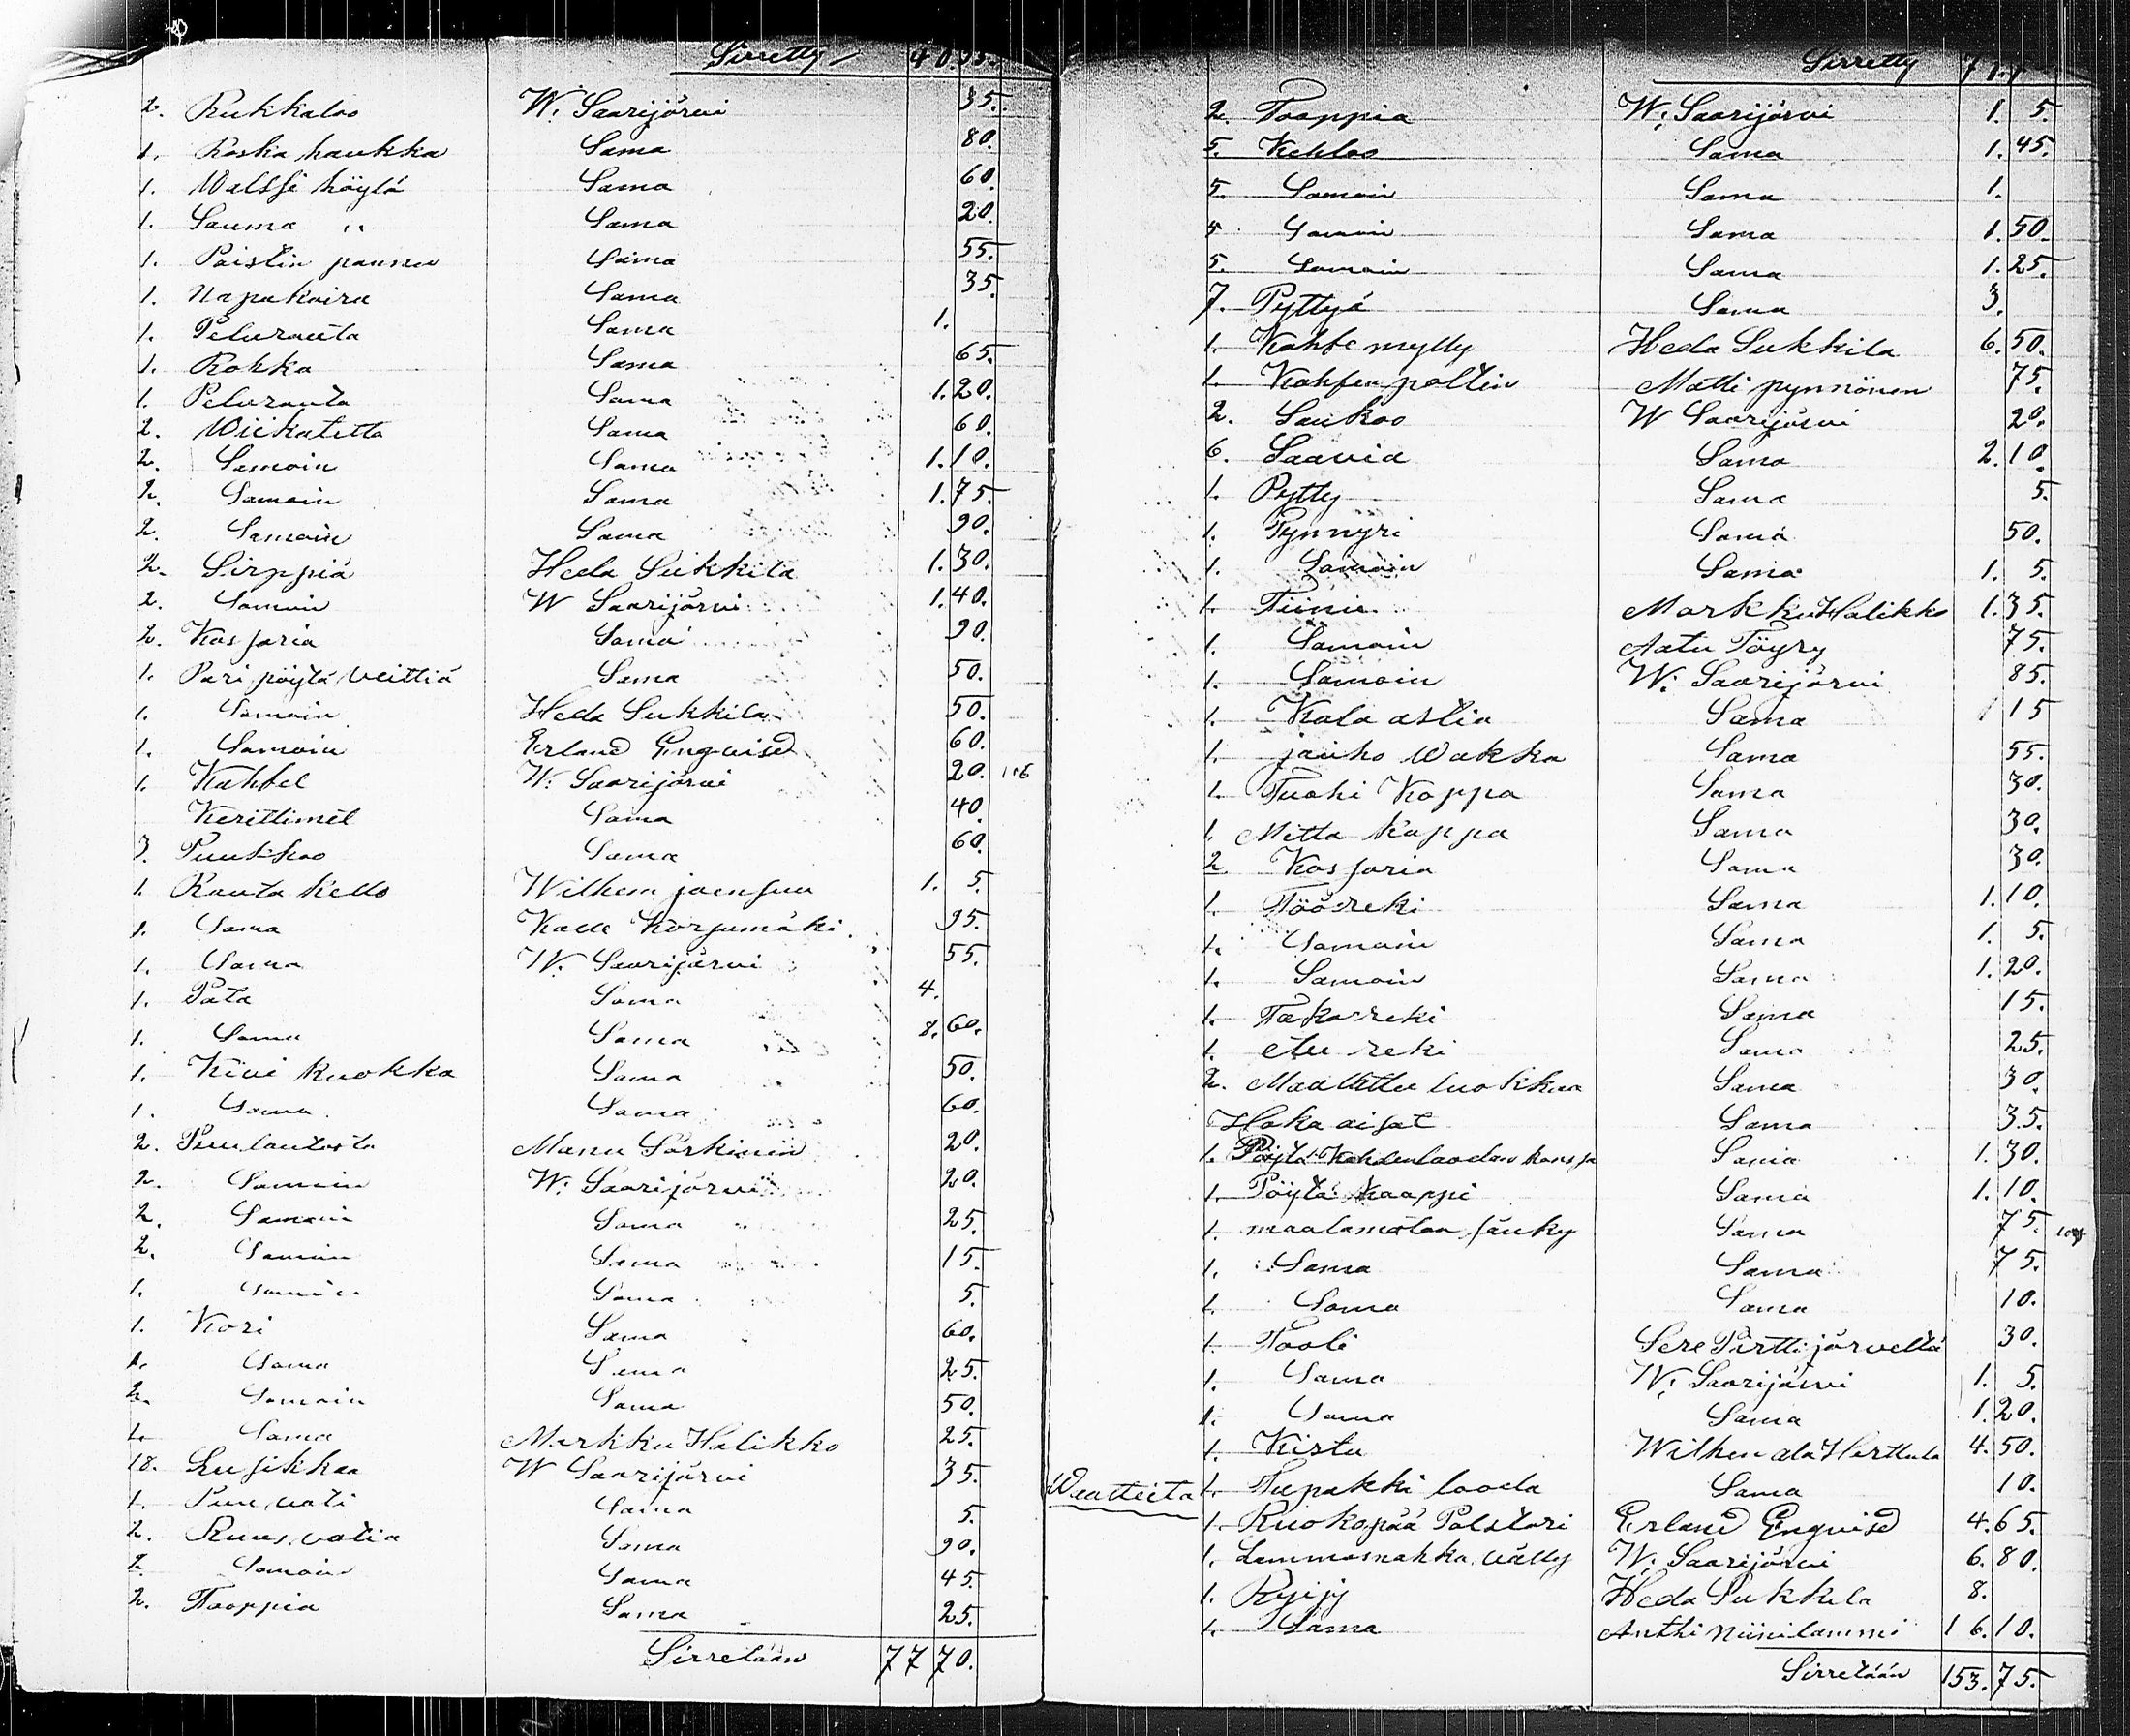 Sirretty 40.35.
2. Kukkaloo W. Saarijärvi 35.
1. Koska haukka Sama 80.
1. Walssi höylä Sama 60.
1. Sauma " Sama 20.
1. Paistin pannu Sama 55.
1. Napakaira Sama 35.
1. Pelurauta Sama 1.
1. Kokka Sama 65.
1. Pelurauta Sama 1.20.
2. Wiikatetta Sama 60.
2. Samoin Sama 1.10.
2. Samoin Sama 1.75.
2. Samoin Sama 90.
2. Sirppiä Heda Sukkila 1.30.
2. Samoin W Saarijärvi 1.40.
2. Kassaria Sama 90.
1. Pari pöytä veittiä Sama 50.
1. Samoin Heda Sukkila 50.
1. Samoin Erland Enqvisd 60.
1. Kahfel W. Saarijärvi 20. 116
Kerittimet Sama 40.
3. Puukkoo Sama 60.
1. Rauta kello Wilhem jaensuu 1. 5.
1. Sama Kalle Korjumäki 95.
1. Sama W. Saarijärvi 55.
1. Pata Sama 4.
1. Sama Sama 8.60.
1. Kivi kuokka Sama 50.
1. Sama Sama 60.
2. Puulautasta Manu Särkinin 20.
2. Samoin W. Saarijärvi 20.
2. Samoin Sama 25.
2. Samoin Sama 15.
1. Samoin Sama 5.
1. Kori Sama 60.
1. Sama Sama 25.
2. Samoin Sama 50.
1. Sama Markku Halikko 25.
18. Lusikkaa W Saarijärvi 35.
1. Puu vati Sama 5.
2. Ruus vatia Sama 90.
2. Samoin Sama 45.
2. Tooppia Sama 25.
Sirretään 77 70.
Sirretty
2. Tooppia W. Saarijärvi 1. 5.
5. Kehloo Sama 1.45.
5. Samoin Sama 1.
5 Samoin Sama 1.50.
5. Samoin Sama 1.25.
7. Pyttyä Sama 3.
1. Kahfe mylly Heda Sukkila 6.50.
1. Kahfen poltin Matti pynnönen 75.
2. Saukoo W Saarijärvi 20.
6. Saavia Sama 2.10.
1. Pytty Sama 5.
1. Tynnyri Sama 50.
1. Samoin Sama 1. 5.
1. Tiinu Markku Halikko 1.35.
1. Samoin Aatu Töyry 75.
1. Samoin W. Saarijärvi 85.
1. Kala astia Sama 15
1. jauho Wakka Sama 55.
1. Tuohi Koppa Sama 30.
1. Mitta kappa Sama 30.
2 Kassaria Sama 30.
1. Töö reki Sama 1.10.
1. Samoin Sama 1. 5.
1. Samoin Sama 1.20.
1. Taka reki Sama 15.
1. etu reki Sama 25.
2. Maalittu luokkaa Sama 30.
Haka aisat Sama 35.
1. Pöytä Kahdenlaodan kanssa Sama 1.30.
1. Pöytä kaappi Sama 1.10.
1. maalamataa sänky Sama 75.
1. Sama Sama 75.
1. Sama Sama 10.
1. Tooli Sere Pirttijärveltä 30.
1. Sama W. Saarijärvi 1. 5.
1. Sama Sama 1.20.
1. Kistu Wilhen ala Herttula 4.50.
Waatteita 1. Tupakki looda Sama 10.
1. Ruokopää Polstari Erland Enqvisd 4.65.
1. Lammasnahka välly W. Saarijärvi 6.80.
1. Ryijy Heda Sukkila 8.
1. Sama Anthi Niinilammi 16.10.
Sirretään 153.75.